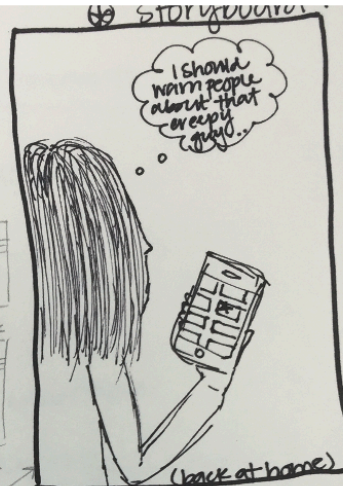 storyboard:
I should
warn people
about that
creepy
guy..
(back at home)